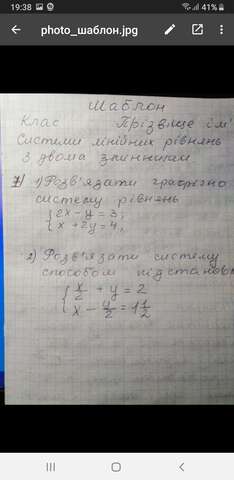 19:38
41%
photo_шаблон.jpg
Шаблон
Клас Прізвище ім'
Системи лінійних рівнянь
з двома змінними
1) Розв'язати графічно
систему рівнянь
{2x - y = 3;
{x + 2y = 4,
2) Розв'язати систему
способом підстанов
{x/2 + y = 2
{x - y/2 = 1 1/2